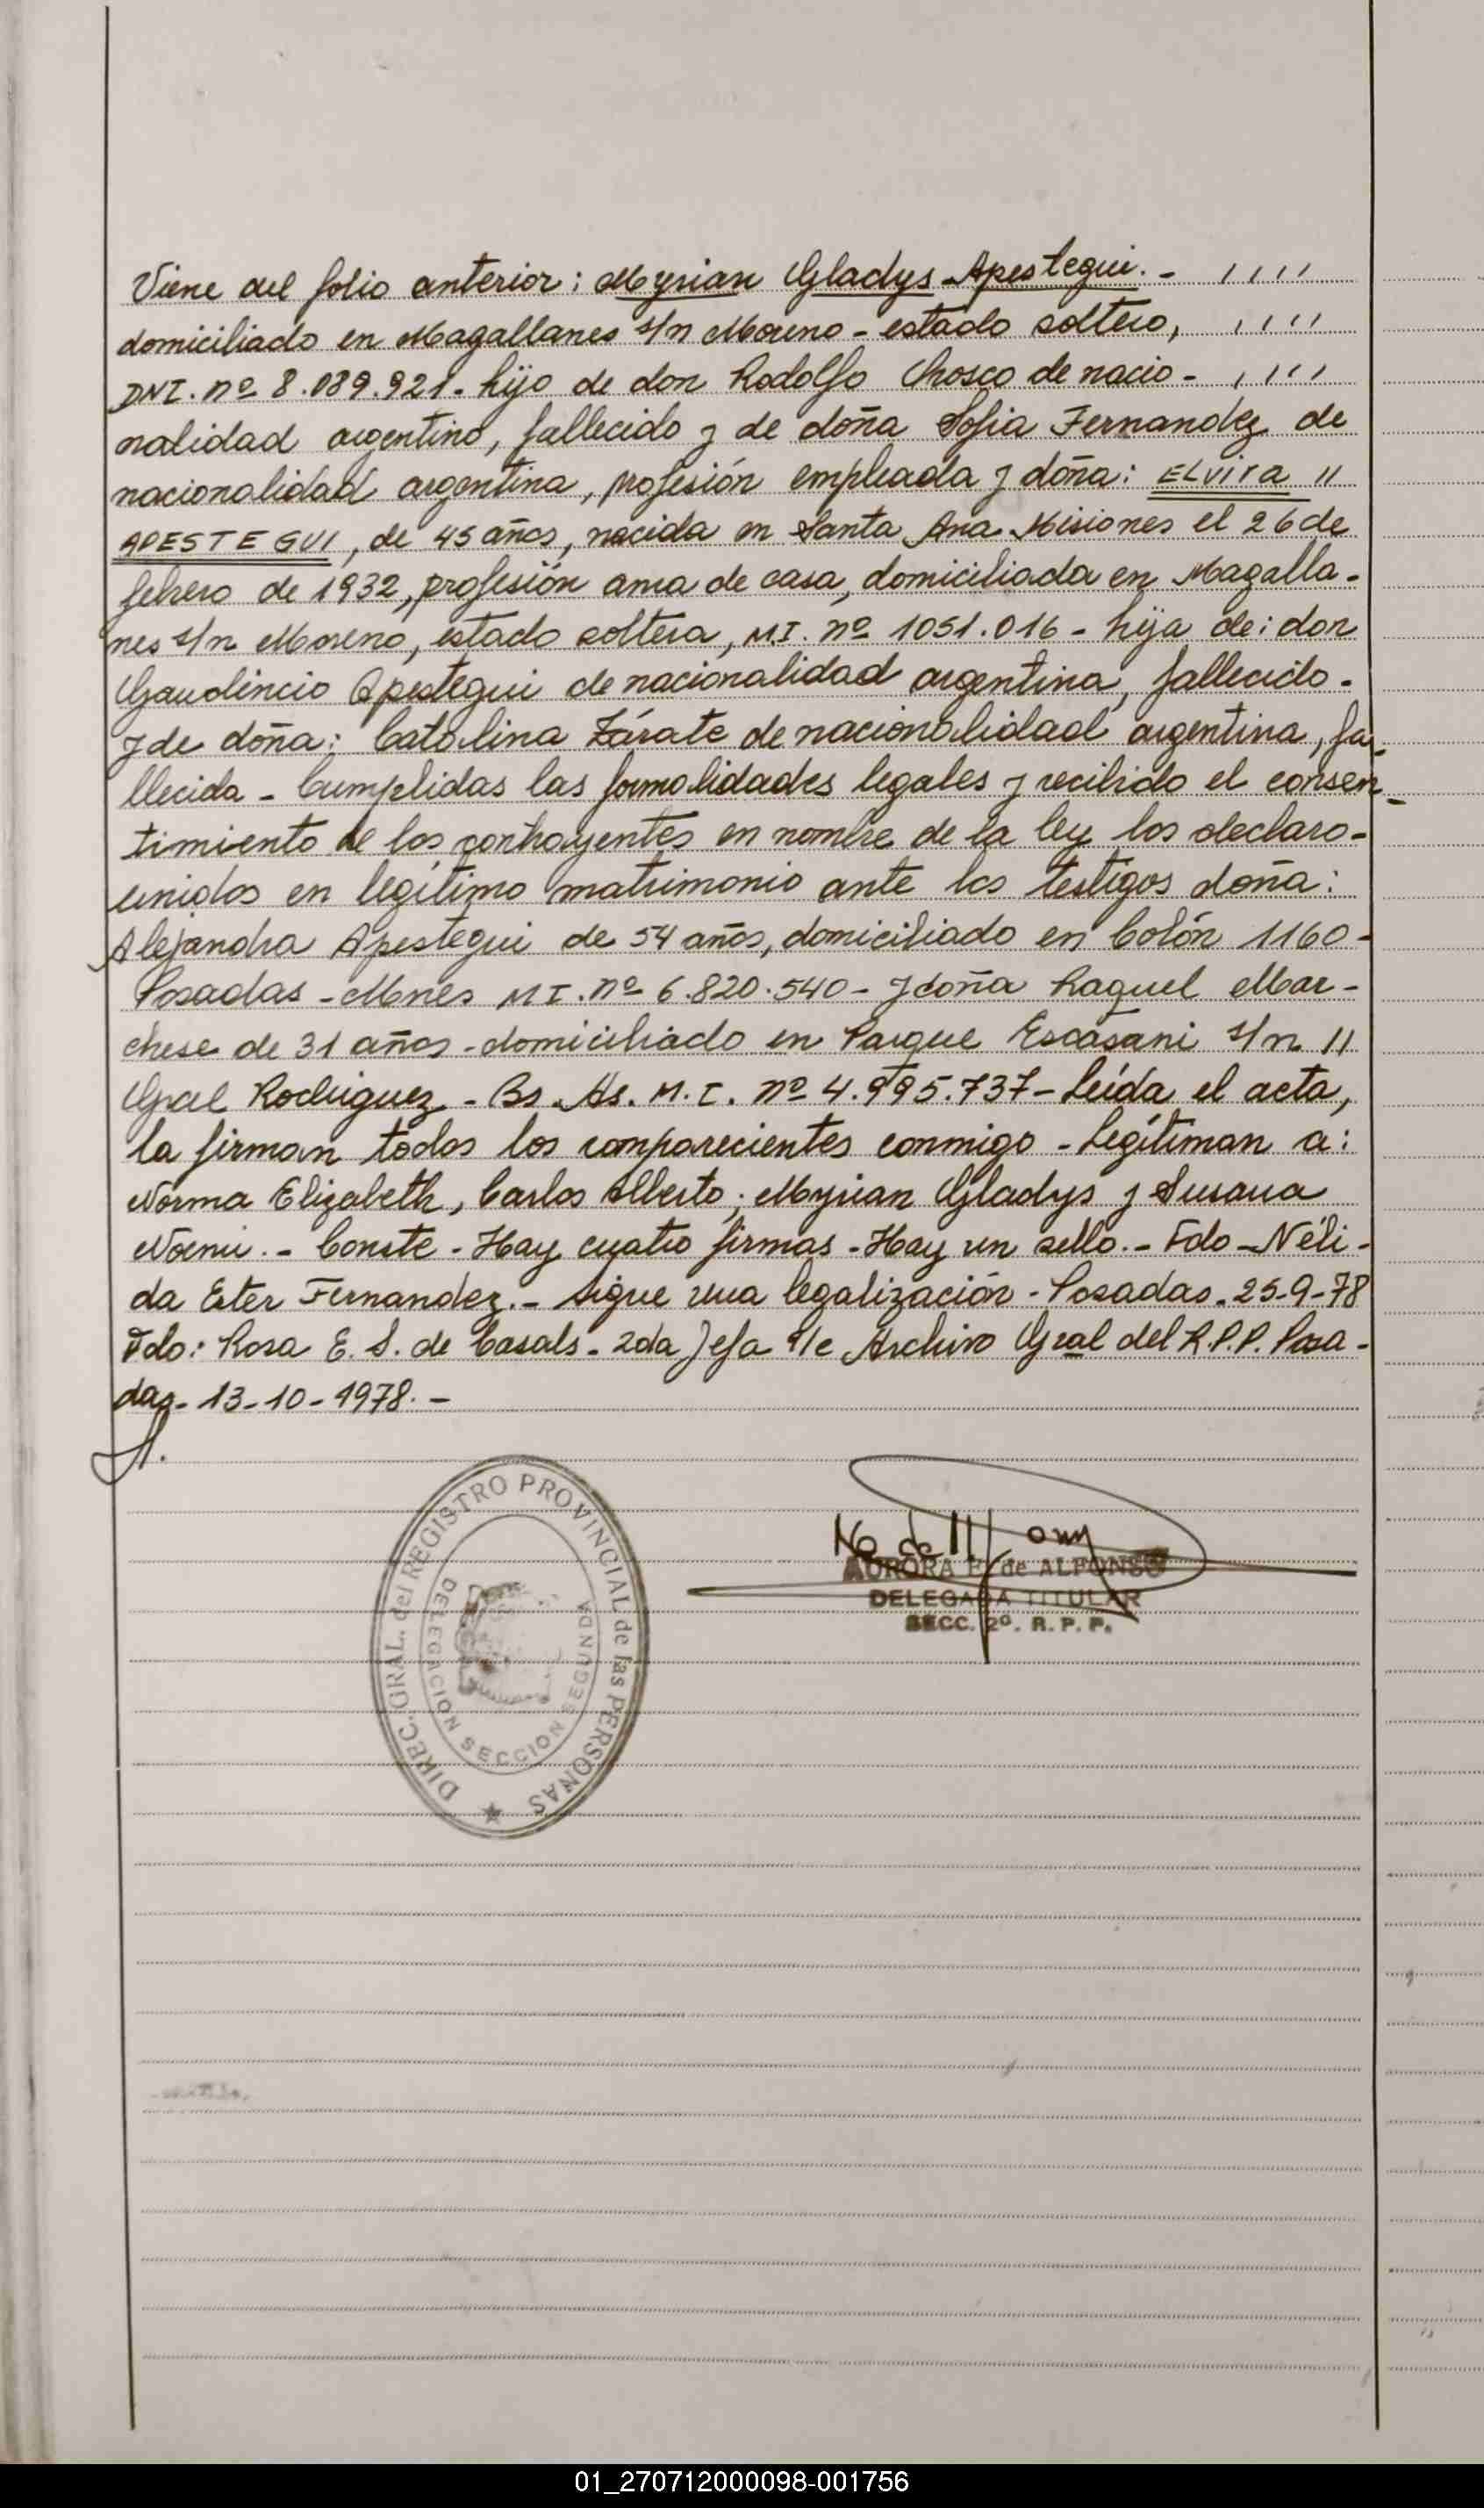 Viene del folio anterior: Myrian Gladys Apestegui.- ,,,,
domiciliado en Magallanes s/n Moreno - estado soltero, ,,,,
DNI. nº 8.089.921 - hijo de don Rodolfo Chosco de nacio- ,,,,
nalidad argentino, fallecido y de doña Sofia Fernandez de
nacionalidad argentina, profesión empleada y doña: ELVIRA //
APESTEGUI, de 45 años, nacida en Santa Ana Misiones el 26 de
febrero de 1932, profesión ama de casa, domiciliada en Magalla-
nes s/n Moreno, estado soltera, M.I. nº 1051.016 - hija de: don
Gaudencio Apestegui de nacionalidad argentina, fallecido -
y de doña: Catalina Zárate de nacionalidad argentina, fa-
llecida - Cumplidas las formalidades legales y recibido el consen-
timiento de los contrayentes en nombre de la ley los declaro -
unidos en legítimo matrimonio ante los testigos doña:
Alejandra Apestegui de 54 años, domiciliado en Colón 1160 -
Posadas - Mnes M I. nº 6.820.540 - y doña Raquel Mar-
chese de 31 años - domiciliado en Parque Escasani s/n //
Gral Rodriguez - Bs. As. M. I. nº 4.995.737 - Leída el acta,
la firman todos los comparecientes conmigo - Legitiman a:
Norma Elizabeth, Carlos Alberto; Myrian Gladys y Susana
Noemi. - Conste - Hay cuatro firmas - Hay un sello. - Fdo - Néli-
da Ester Fernandez. - Sigue una legalización - Posadas. 25-9-78
Fdo: Rosa E. S. de Casals - 2da Jefa a/c Archivo Gral del R.P.P. Posa-
das - 13-10-1978. -
DIREC. GRAL. del REGISTRO PROVINCIAL de las PERSONAS
DELEGACION SECCION SEGUNDA
AURORA E. de ALFONSO
DELEGADA TITULAR
SECC. 2ª. R. P. P.
01_270712000098-001756